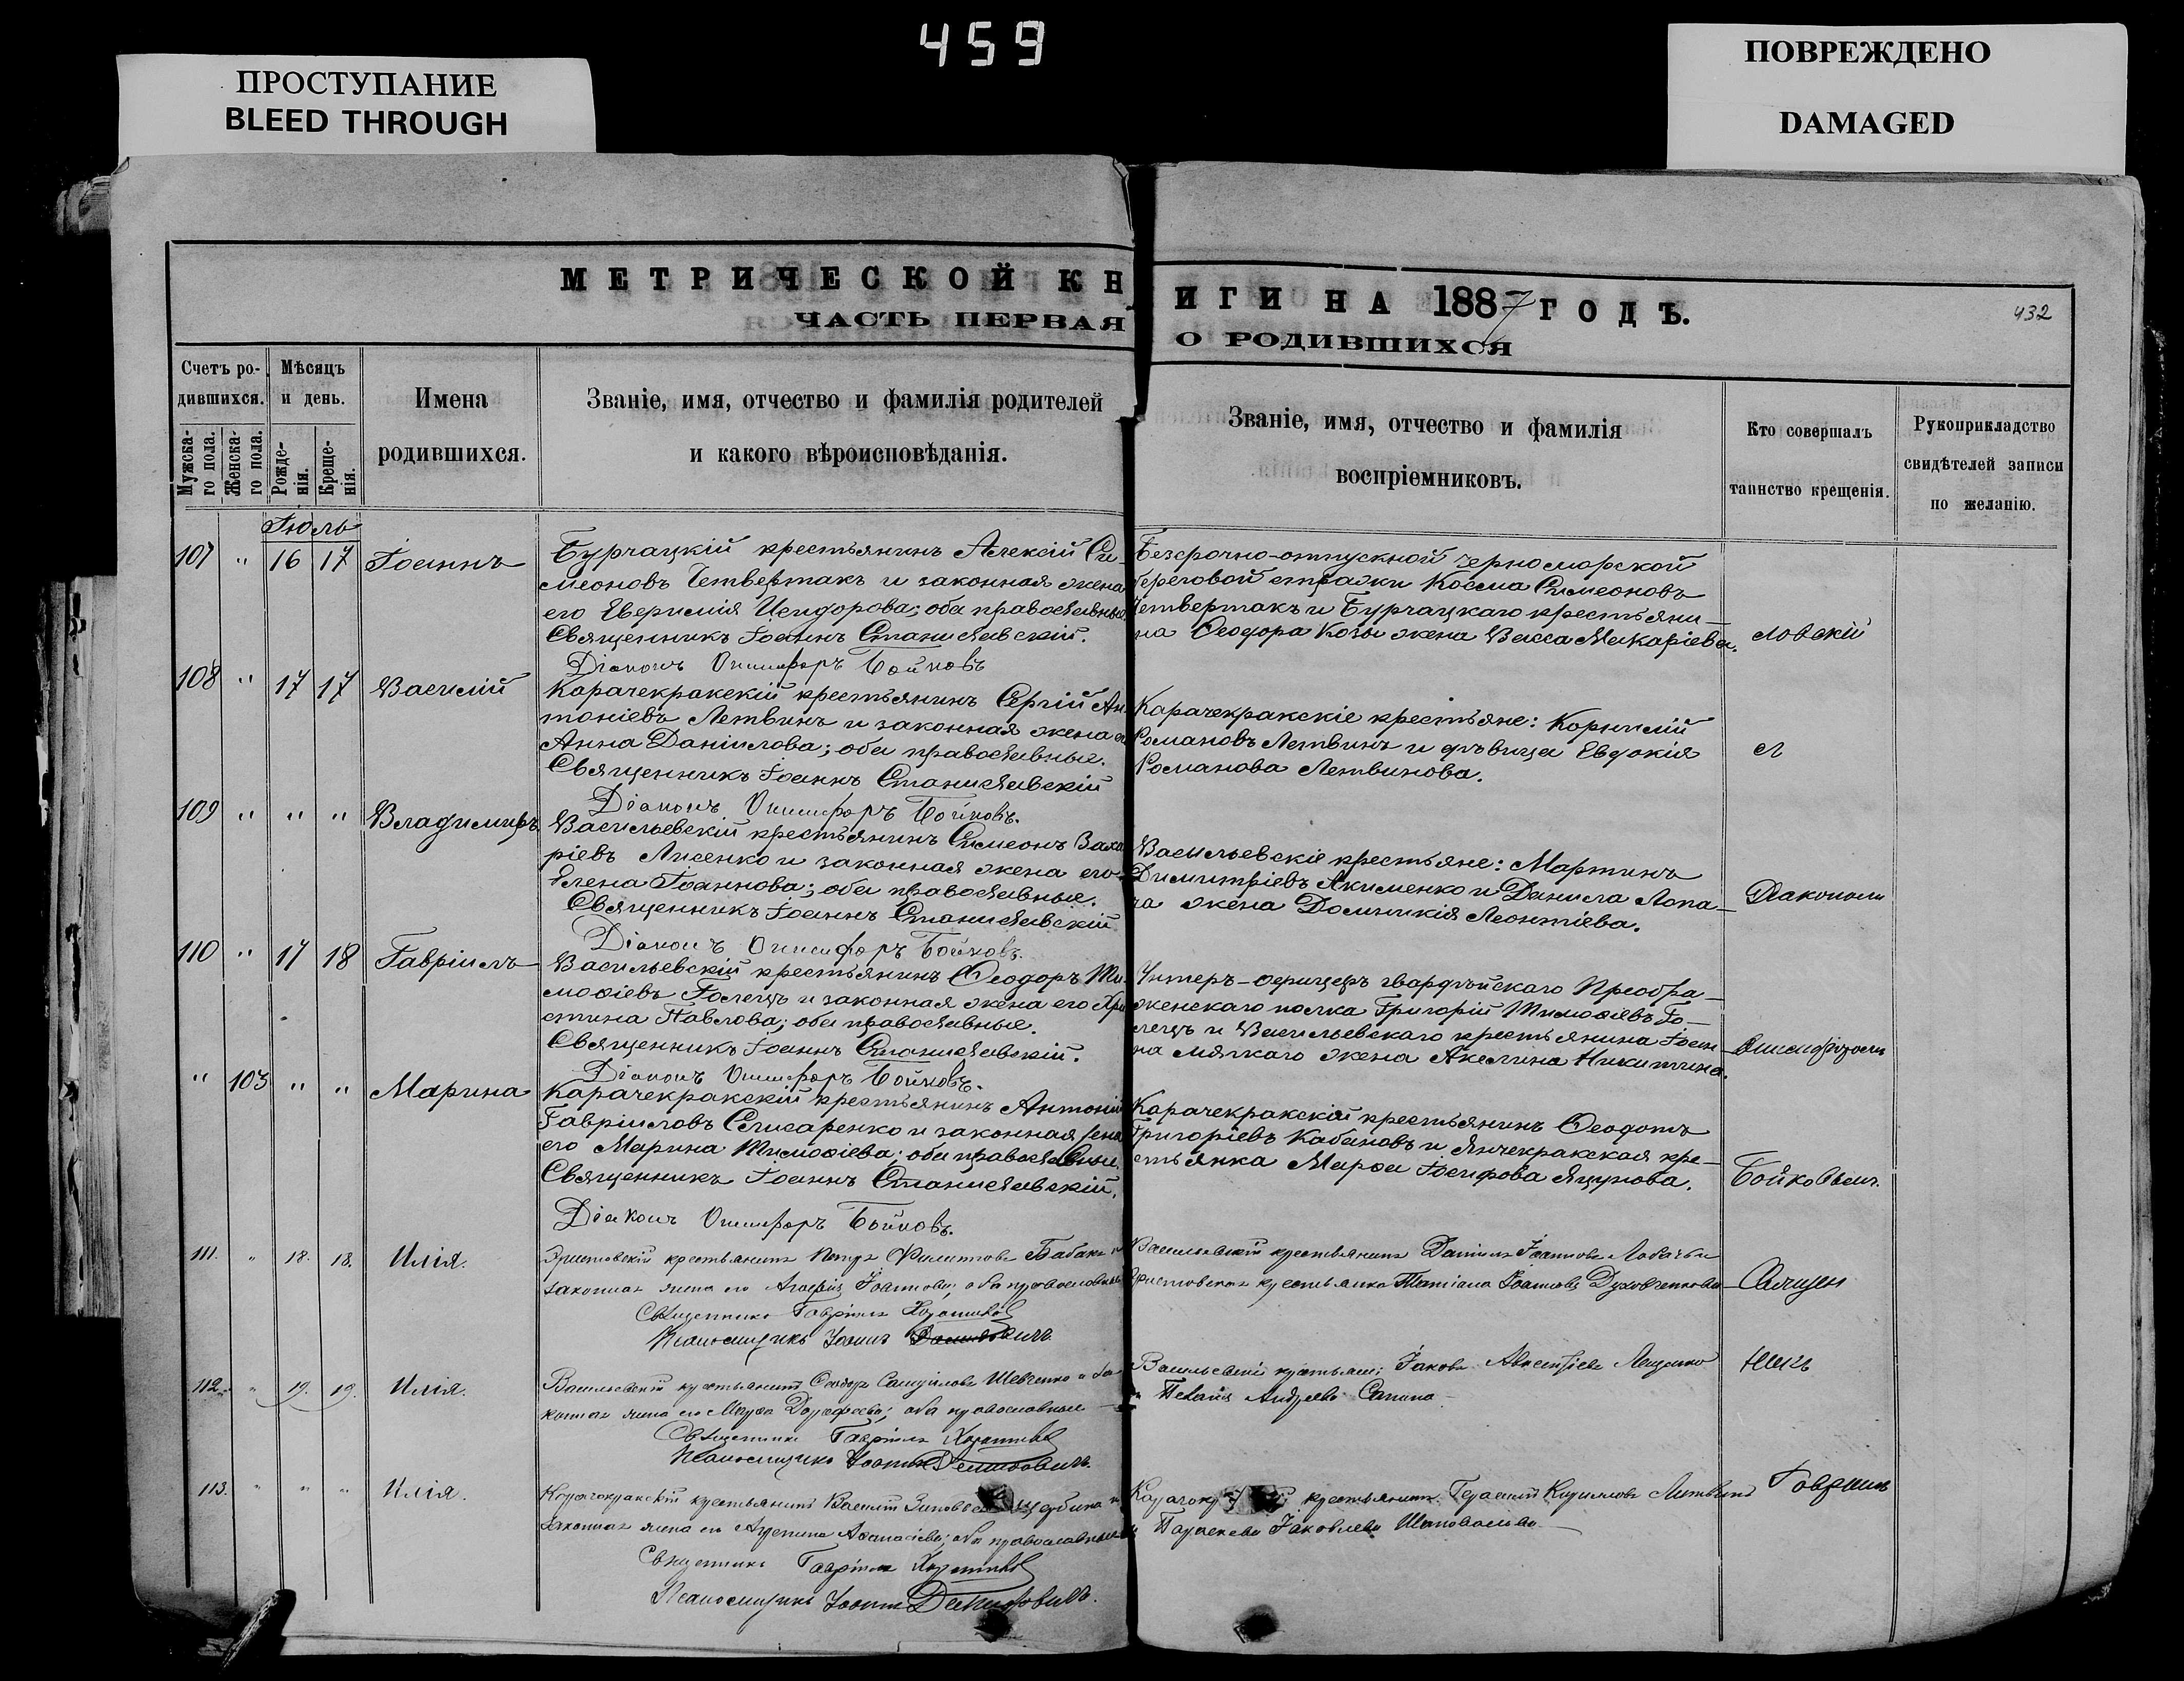 459
ПРОСТУПАНИЕ
BLEED THROUGH
ПОВРЕЖДЕНО
DAMAGED
МЕТРИЧЕСКОЙ КНИГИ НА 1887 ГОДЪ.
ЧАСТЬ ПЕРВАЯ О РОДИВШИХСЯ
432
Счетъ ро-
дившихся.
Мужска-
го пола.
Женска-
го пола.
Мѣсяцъ
и день.
Рожде-
нія.
Креще-
нія.
Имена
родившихся.
Званіе, имя, отчество и фамилія родителей
и какого вѣроисповѣданія.
Званіе, имя, отчество и фамилія
воспріемниковъ.
Кто совершалъ
таинство крещенія.
Рукоприкладство
свидѣтелей записи
по желанію.
Іюль
107 " 16 17 Іоаннъ
Бурчацкій крестьянинъ Алексій Си-
меоновъ Четвертакъ и законная жена
его Евфимія Исидорова; оба православные.
Священникъ Іоаннъ Станиславскій.
Діаконъ Онисифоръ Бойковъ
Безсрочно-отпускной черноморской
береговой стражи Косма Симеоновъ
Четвертакъ и Бурчацкаго крестьяни-
на Ѳеодора Козы жена Васса Макаріева.
108 " 17 17 Василій
Карачекракскій крестьянинъ Сергій Ан-
тоніевъ Летвинъ и законная жена его
Анна Даніилова; оба православные.
Священникъ Іоаннъ Станиславскій
Діаконъ Онисифоръ Бойковъ.
Карачекракскіе крестьяне: Корнилій
Романовъ Летвинъ и дѣвица Евдокія
Романова Летвинова.
109 " " " Владимиръ
Васильевскій крестьянинъ Симеонъ Заха-
ріевъ Лисенко и законная жена его
Елена Іоаннова; оба православные.
Священникъ Іоаннъ Станиславскій
Діаконъ Онисифоръ Бойковъ.
Васильевскіе крестьяне: Мартинъ
Димитріевъ Якименко и Данила Лопа-
жена Домникія Леонтіева.
Діакономъ
110 " 17 18 Гавріилъ
Васильевскій крестьянинъ Ѳеодоръ Ти-
моѳіевъ Голецъ и законная жена его Хри-
стина Павлова; оба православные.
Священникъ Іоаннъ Станиславскій.
Діаконъ Онисифоръ Бойковъ.
Унтеръ-офицеръ гвардѣйскаго Преобра-
женскаго полка Григорій Тимоѳіевъ Го-
лецъ и Васильевскаго крестьянина Іоан-
на Мягкаго жена Акилина Никитина.
Онисифоромъ
" 103 " " Марина
Карачекракскій крестьянинъ Антоній
Гавріиловъ Слисаренко и законная жена
его Марина Тимоѳіева; оба православные.
Священникъ Іоаннъ Станиславскій.
Діаконъ Онисифоръ Бойковъ.
Карачекракскій крестьянинъ Ѳеодотъ
Григоріевъ Кабановъ и Янчекракская кре-
стьянка Марѳа Іосифова Яцунова.
Бойковымъ.
111. " 18. 18. Илія.
крестьянинъ Петръ Филиповъ Бабакъ и
законная жена его Агафія Іоаннова; оба православные
Священникъ Гавріилъ
Псаломщикъ Іоаннъ
Васильевскій крестьянинъ Даніилъ Іоанновъ
крестьянка Татіана Іоаннова
Священ
112. " 19. 19. Илія.
Васильевскій крестьянинъ Ѳеодоръ Самуиловъ Шевченко и за-
конная жена его Марѳа Дороѳеева; оба православные
Священникъ Гавріилъ
Псаломщикъ Іоаннъ
Васильевскіе крестьяне: Іаковъ Лященко
Пелагія Андреева
никъ
113. " " " Илія.
Карачекракскій крестьянинъ Василій Щербина и
законная жена его Агрипина Аѳанасіева; оба православные
Священникъ Гавріилъ
Псаломщикъ Іоаннъ
крестьянинъ Герасимъ Кирилловъ Литвинъ
и Параскева Іаковлева Шаповалова
Гавріилъ